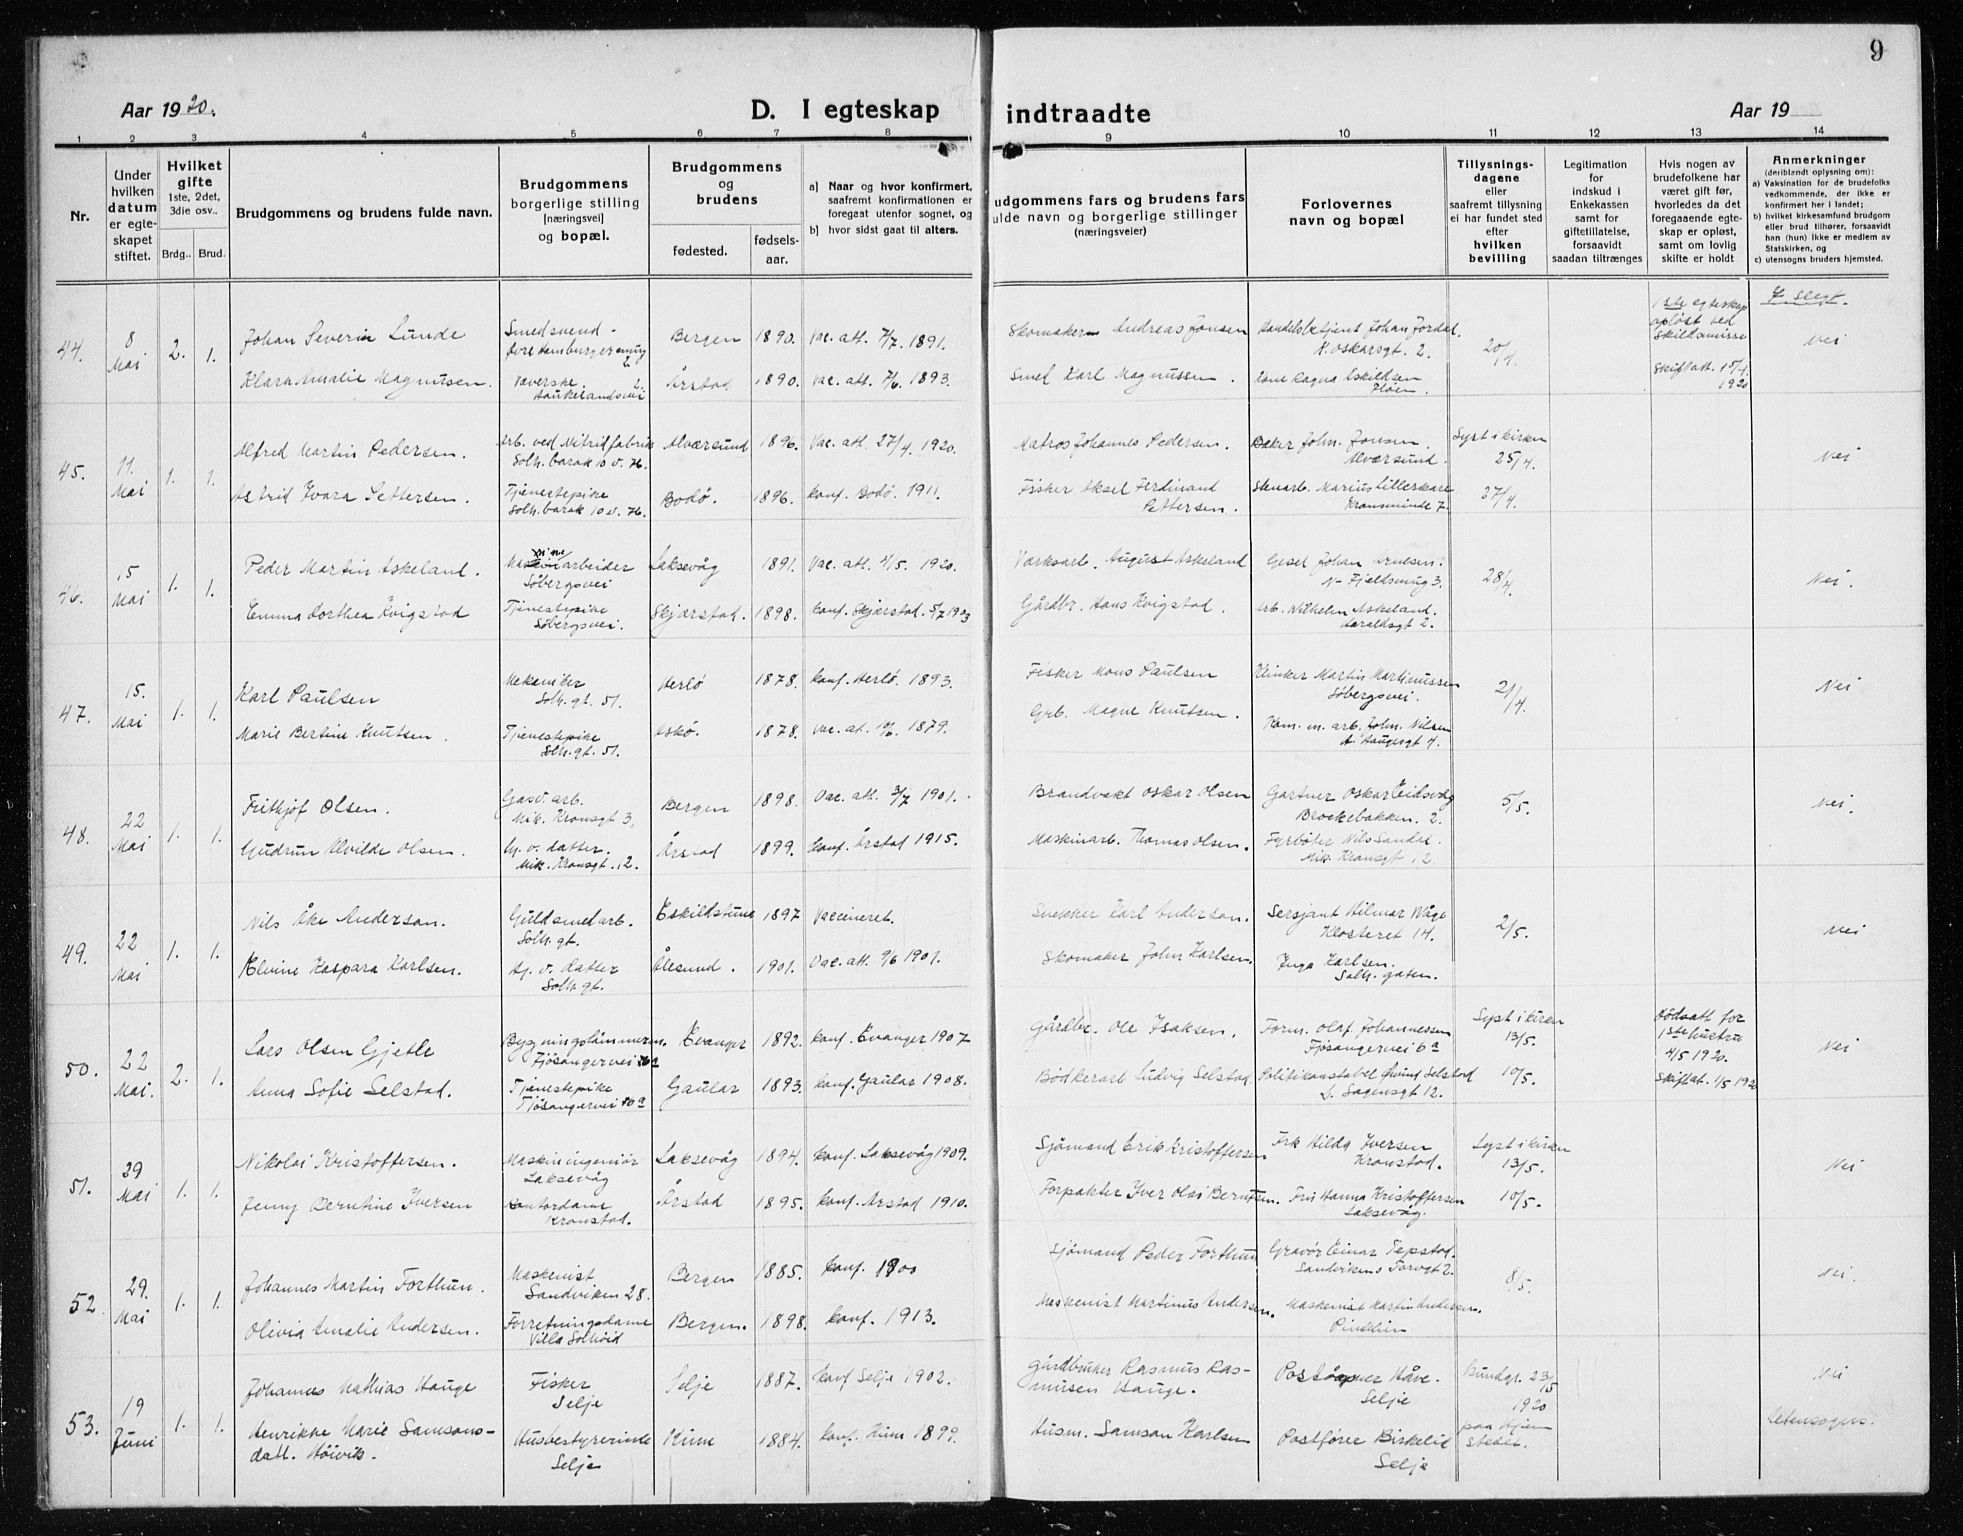 9
Aar 1920.
D. I egteskap
indtraadte
Aar 19
1 2 3 4 5 6 7 8 9 10 11 12 13 14
Nr.
Under hvilken datum er egteskapet stiftet.
Hvilket gifte 1ste, 2det, 3die osv..
Brdg.. Brud.
Brudgommens og brudens fulde navn.
Brudgommens borgerlige stilling (næringsvei) og bopæl.
Brudgommens og brudens
fødested. fødselsaar.
a) Naar og hvor konfirmert, saafremt konfirmationen er foregaat utenfor sognet, og
b) hvor sidst gaat til alters.
udgommens fars og brudens fars
ulde navn og borgerlige stillinger
(næringsveier)
Forlovernes navn og bopæl
Tillysningsdagene eller saafremt tillysning ei har fundet sted efter hvilken bevilling
Legitimation for indskud i Enkekassen samt for giftetillatelse, forsaavidt saadan tiltrænges
Hvis nogen av brudefolkene har været gift før, hvorledes da det foregaaende egteskap er opløst, samt om lovlig skifte er holdt
Anmerkninger
(deriblandt oplysning om):
a) Vaksination for de brudefolks vedkommende, der ikke er konfirmert her i landet;
b) hvilket kirkesamfund brudgom eller brud tilhører, forsaavidt han (hun) ikke er medlem av Statskirken, og
c) utensogns bruders hjemsted.
44. 8 Mai 2. 1.
Johan Severin Lunde
Smedsvend
Bergen 1890. Vac. att. 7/7 1891.
Skomaker Andreas Jonsen
Handelsbetjent Johan Jordal.
K. Oskarsgt. 2.
20/4
1ste egteskap opløst ved Skilsmisse
Skiftatt. 15/4 1920
I slegt.
Nei
Klara Amalie Magnusen.
Væverske. Haukelandsvei 2.
Årstad 1890. Vac. att. 7/6 1893.
Smed Karl Magnussen.
45. 11. Mai 1. 1.
Alfred Martin Pedersen.
Arb. ved Nitridfabrik
Solh. barak 10 v. 76.
Alværsund 1896. Vac. att. 27/4 1920.
Matros Johannes Pedersen.
Baker John. Jonsen.
Alværsund.
Lyst i kirken
25/4.
Nei
Astrid Ivara Pettersen.
Tjenestepike
Solh. barak 10 v. 76.
Bodø. 1896. konf. Bodø. 1911.
Fisker Aksel Ferdinand Pettersen.
Stenarb. Marius Lilleskare
Kronsminde 7.
27/4.
46. 15 Mai 1. 1.
Peder Martin Askeland.
arbeider
Søbergsvei
Laksevåg 1891. Vac. att. 1920.
Værksarb. August Askeland
28/4.
Nei.
Emma Dorthea Kvigstad
Tjenestepike
Søbergsvei.
Skjærstad. 1898. konf. Skjærstad. 5/7 1903
Gårdbr. Hans Kvigstad.
Arb. Wilhelm Askeland.
Haraldsgt 2.
47. 15. Mai 1. 1.
Karl Paulsen
Mekaniker
Solh. gt. 51.
Herlø 1878. konf. Herlø. 1893.
Fisker Mons Paulsen
Klinker Martin Martinussen
Søbergsvei.
2/4.
Nei
Marie Bertine Knutsen.
Tjenestepike
Solh. gt. 51.
Askø. 1878. Vac. at. 1879.
Grb. Magne Knutsen.
Kom. m. arb. John. Nilsen
48. 22 Mai 1. 1.
Frithjof Olsen.
Gasv. arb.
Mik. Kronsgt 3.
Bergen 1898. Vac. att. 3/7 1901.
Brandvakt Oskar Olsen
Gartner Oskar Eidsvåg
Brækkebakken. 2.
5/5.
Nei.
Gudrun Alvilde Olsen.
Hj. v. datter.
Mik. Kronsgt. 12.
Årstad 1899. konf. Årstad 1915.
Maskinarb. Thomas Olsen.
Fyrbøter Nils Sandal.
Mik. Kronsgt 12.
49. 22 Mai 1. 1.
Nils Åke Anderson.
Guldsmedarb.
Solh. gt.
Eskildstuna 1897 Vaccineret.
Snekker Karl Anderson.
Sersjant Hilmar Våge
Klosteret 14.
2/5.
Nei
Elvine Kaspara Karlsen.
Hj. v. datter
Solh. gt.
Ålesund. 1901. Vac. att. 9/6 1901.
Skomaker John Karlsen.
Inga Karlsen.
Solh. gaten.
50. 22 Mai. 2. 1.
Lars Olsen Gjetle
Bygningstømmerm.
Fjøsangervei
Evanger 1892. konf. Evanger 1907
Gårdbr. Ole Isaksen.
Form. Olaf Johannessen
Fjøsangervei 6a
Lyst i kirken
13/5.
Dødsatt for 1ste hustru 4/5 1920.
Skiftat. 1/5 1920
Nei
Anna Sofie Selstad.
Tjenestepike
Fjøsangervei
Gaular 1893. konf. Gaular 1908.
Bødkerarb Ludvig Selstad
Politikonstabel Selstad
L. Sagensgt 12.
10/5.
51. 29 Mai 1. 1.
Nikolai Kristoffersen.
Maskiningeniør
Laksevåg
Laksevåg 1894. konf. Laksevåg 1909.
Sjømand Erik Kristoffersen
Frk Hilda Iversen
Kronstad.
Lyst i kirken
13/5.
Nei
Jenny Berntine Iversen
Kontordame
Kronstad.
Årstad 1895. konf. Årstad 1910.
Forpakter Iver Olai Berntsen.
Fru Hanna Kristoffersen
Laksevåg.
10/5.
52 29. Mai 1. 1.
Johannes Martin Forthun.
Maskenist
Sandviken 28.
Bergen 1885. konf. 1900
Sjømand Peder Forthun
Gravør Einar Tepstad.
Sandvikens Torvgt 2.
8/5.
Nei.
Olivia Amalie Andersen.
Forretningsdame
Villa Solheid
Bergen. 1898. konf. 1913.
Maskenist Martinus Andersen.
Maskenist Martin Andersen.
53. 19 Juni 1. 1.
Johannes Mathias Hauge
Fisker
Selje
Selje 1887. konf Selje 1902.
Gårdbruker Rasmus Rasmussen Hauge.
Postå̊pner Håve.
Selje
Kundgj. 23/5 1920 paa hjem stedet.
Nei
Utensogns.
Henrikke Marie Samsonsdatt. Høivik.
Husbestyrerinde
Selje
Kinn 1884. konf. Kinn 1899.
Husm. Samson Karlsen
Postfører Birkelid
Selje